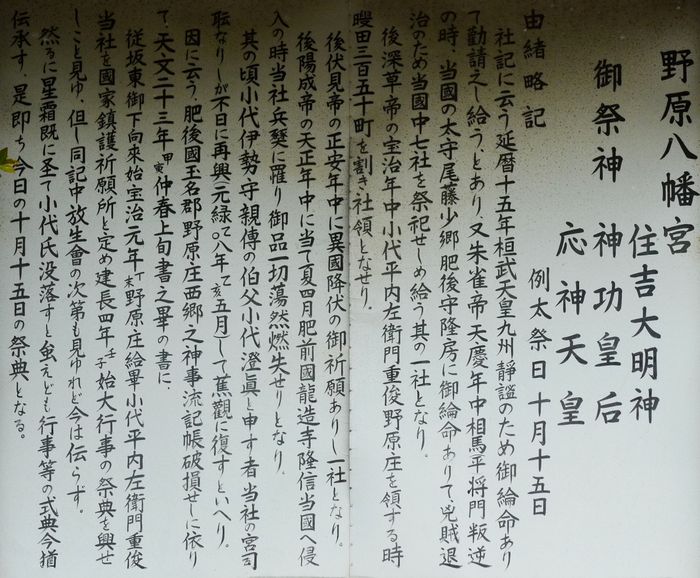 野原八幡宮
住吉大明神
御祭神　神功皇后
応神天皇
例太祭日十月十五日
由緒略記
社記に云う延暦十五年桓武天皇九州靜謐のため御綸命あり
て勸請えし給う、とあり、又朱雀帝天慶年中相馬平将門叛逆
の時、当國の太守尾藤少郷肥後守隆房に御綸命ありて、兇賊退
治のため当國中七社を祭祀せしめ給う其の一社となり。
後深草帝の宝治年中小代平内左衛門重俊野原庄を領する時
田三百五十町を割き社領となせり。
後伏見帝の正安年中に異國降伏の御祈願ありし一社となり。
後陽成帝の天正年中に当て夏四月肥前國龍造寺隆信当國へ侵
入の時当社兵燹に罹り御品一切蕩然燃失せりとなり。
其の頃小代伊勢守親傳の伯父小代澄眞と申す者当社の宮司
なりしが不日に再興（元緑て八年乙亥五月）して蕉觀に復すといへり。
因に云う、肥後國玉名郡野原庄西郷之神事流記帳破損せしに依り
て、天文二十三年甲寅仲春上旬書之畢の書に、
従坂東御下向來始宝治元年丁未野原庄給畢小代平内左衛門重俊
当社を國家鎮護祈願所と定め建長四年壬子始大行事の祭典を興せ
しこと見ゆ、但し同記中放生會の次第も見ゆれど今は伝らず。
然るに星霜既に圣て小代氏没落すと虽えども行事等の式典今猶
伝承す、是即ち今日の十月十五日の祭典となる。